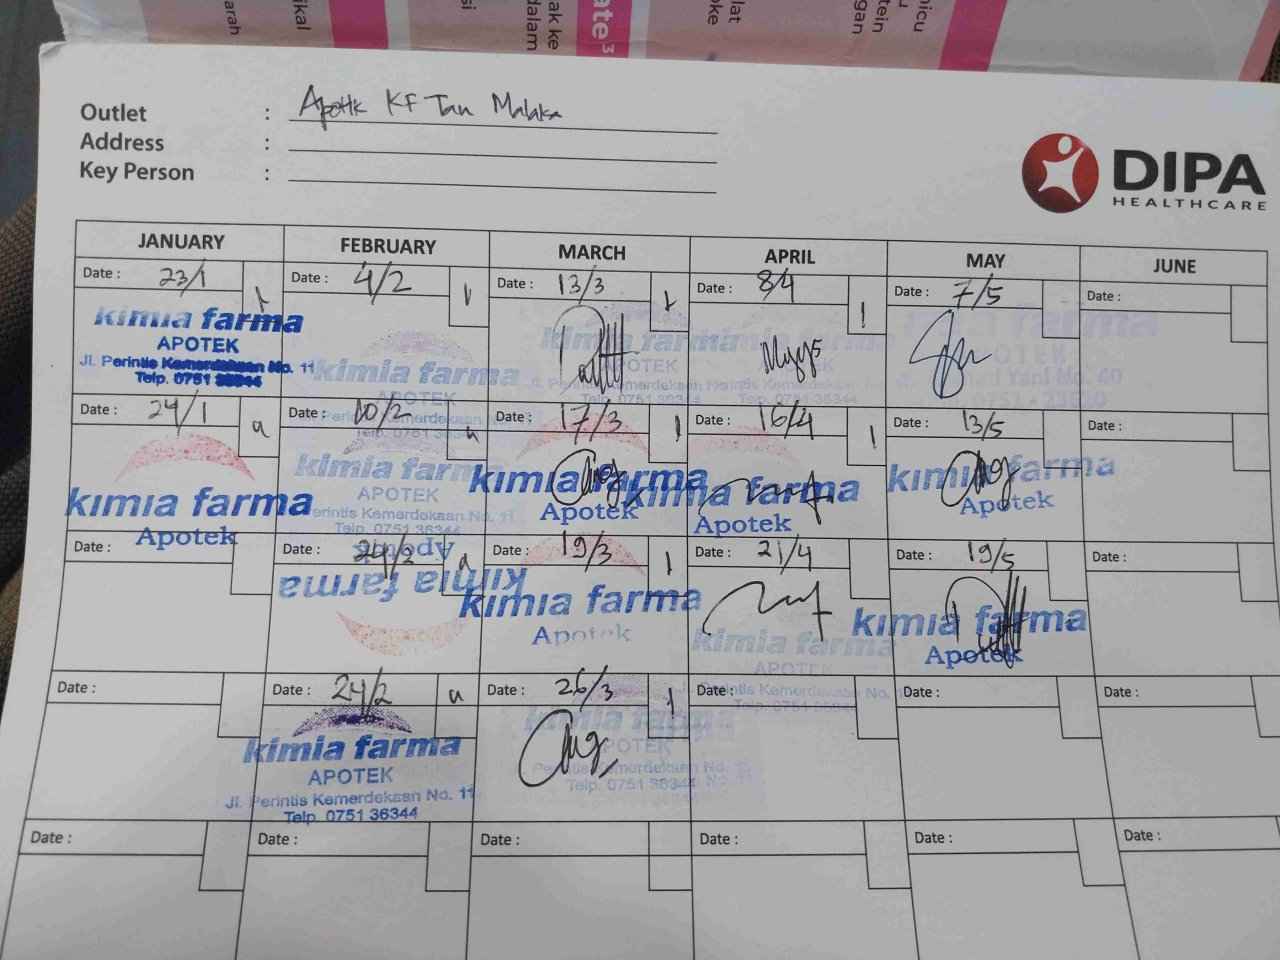 Outlet : Apotik KF Tan Malaka
Address :
Key Person :
DIPA
HEALTHCARE
JANUARY FEBRUARY MARCH APRIL MAY JUNE
Date : 23/1 Date : 4/2 Date : 13/3 Date : 8/4 Date : 7/5 Date :
kimia farma
APOTEK
Jl. Perintis Kemerdekaan No. 11
Telp. 0751 36344
kimia farma
APOTEK
Perintis Kemerdekaan
Telp. 0751 36344
Date : 24/1 Date : 10/2 Date : 17/3 Date : 16/4 Date : 13/5 Date :
kimia farma
Apotek
kimia farma
APOTEK
Perintis Kemerdekaan No. 11
Telp. 0751 36344
kimia farma
Apotek
kimia farma
Apotek
kimia farma
Apotek
Date : Date : 24/2 Date : 19/3 Date : 21/4 Date : 19/5 Date :
Apotek
kimia farma
kimia farma
Apotek
kimia farma
APOTEK
Jl. Perintis Kemerdekaan No.
kimia farma
Apotek
Date : Date : 24/2 Date : 26/3 Date : Date : Date :
kimia farma
APOTEK
Jl. Perintis Kemerdekaan No. 11
Telp. 0751 36344
kimia farma
APOTEK
Telp. 0751 36344
Date : Date : Date : Date : Date : Date :